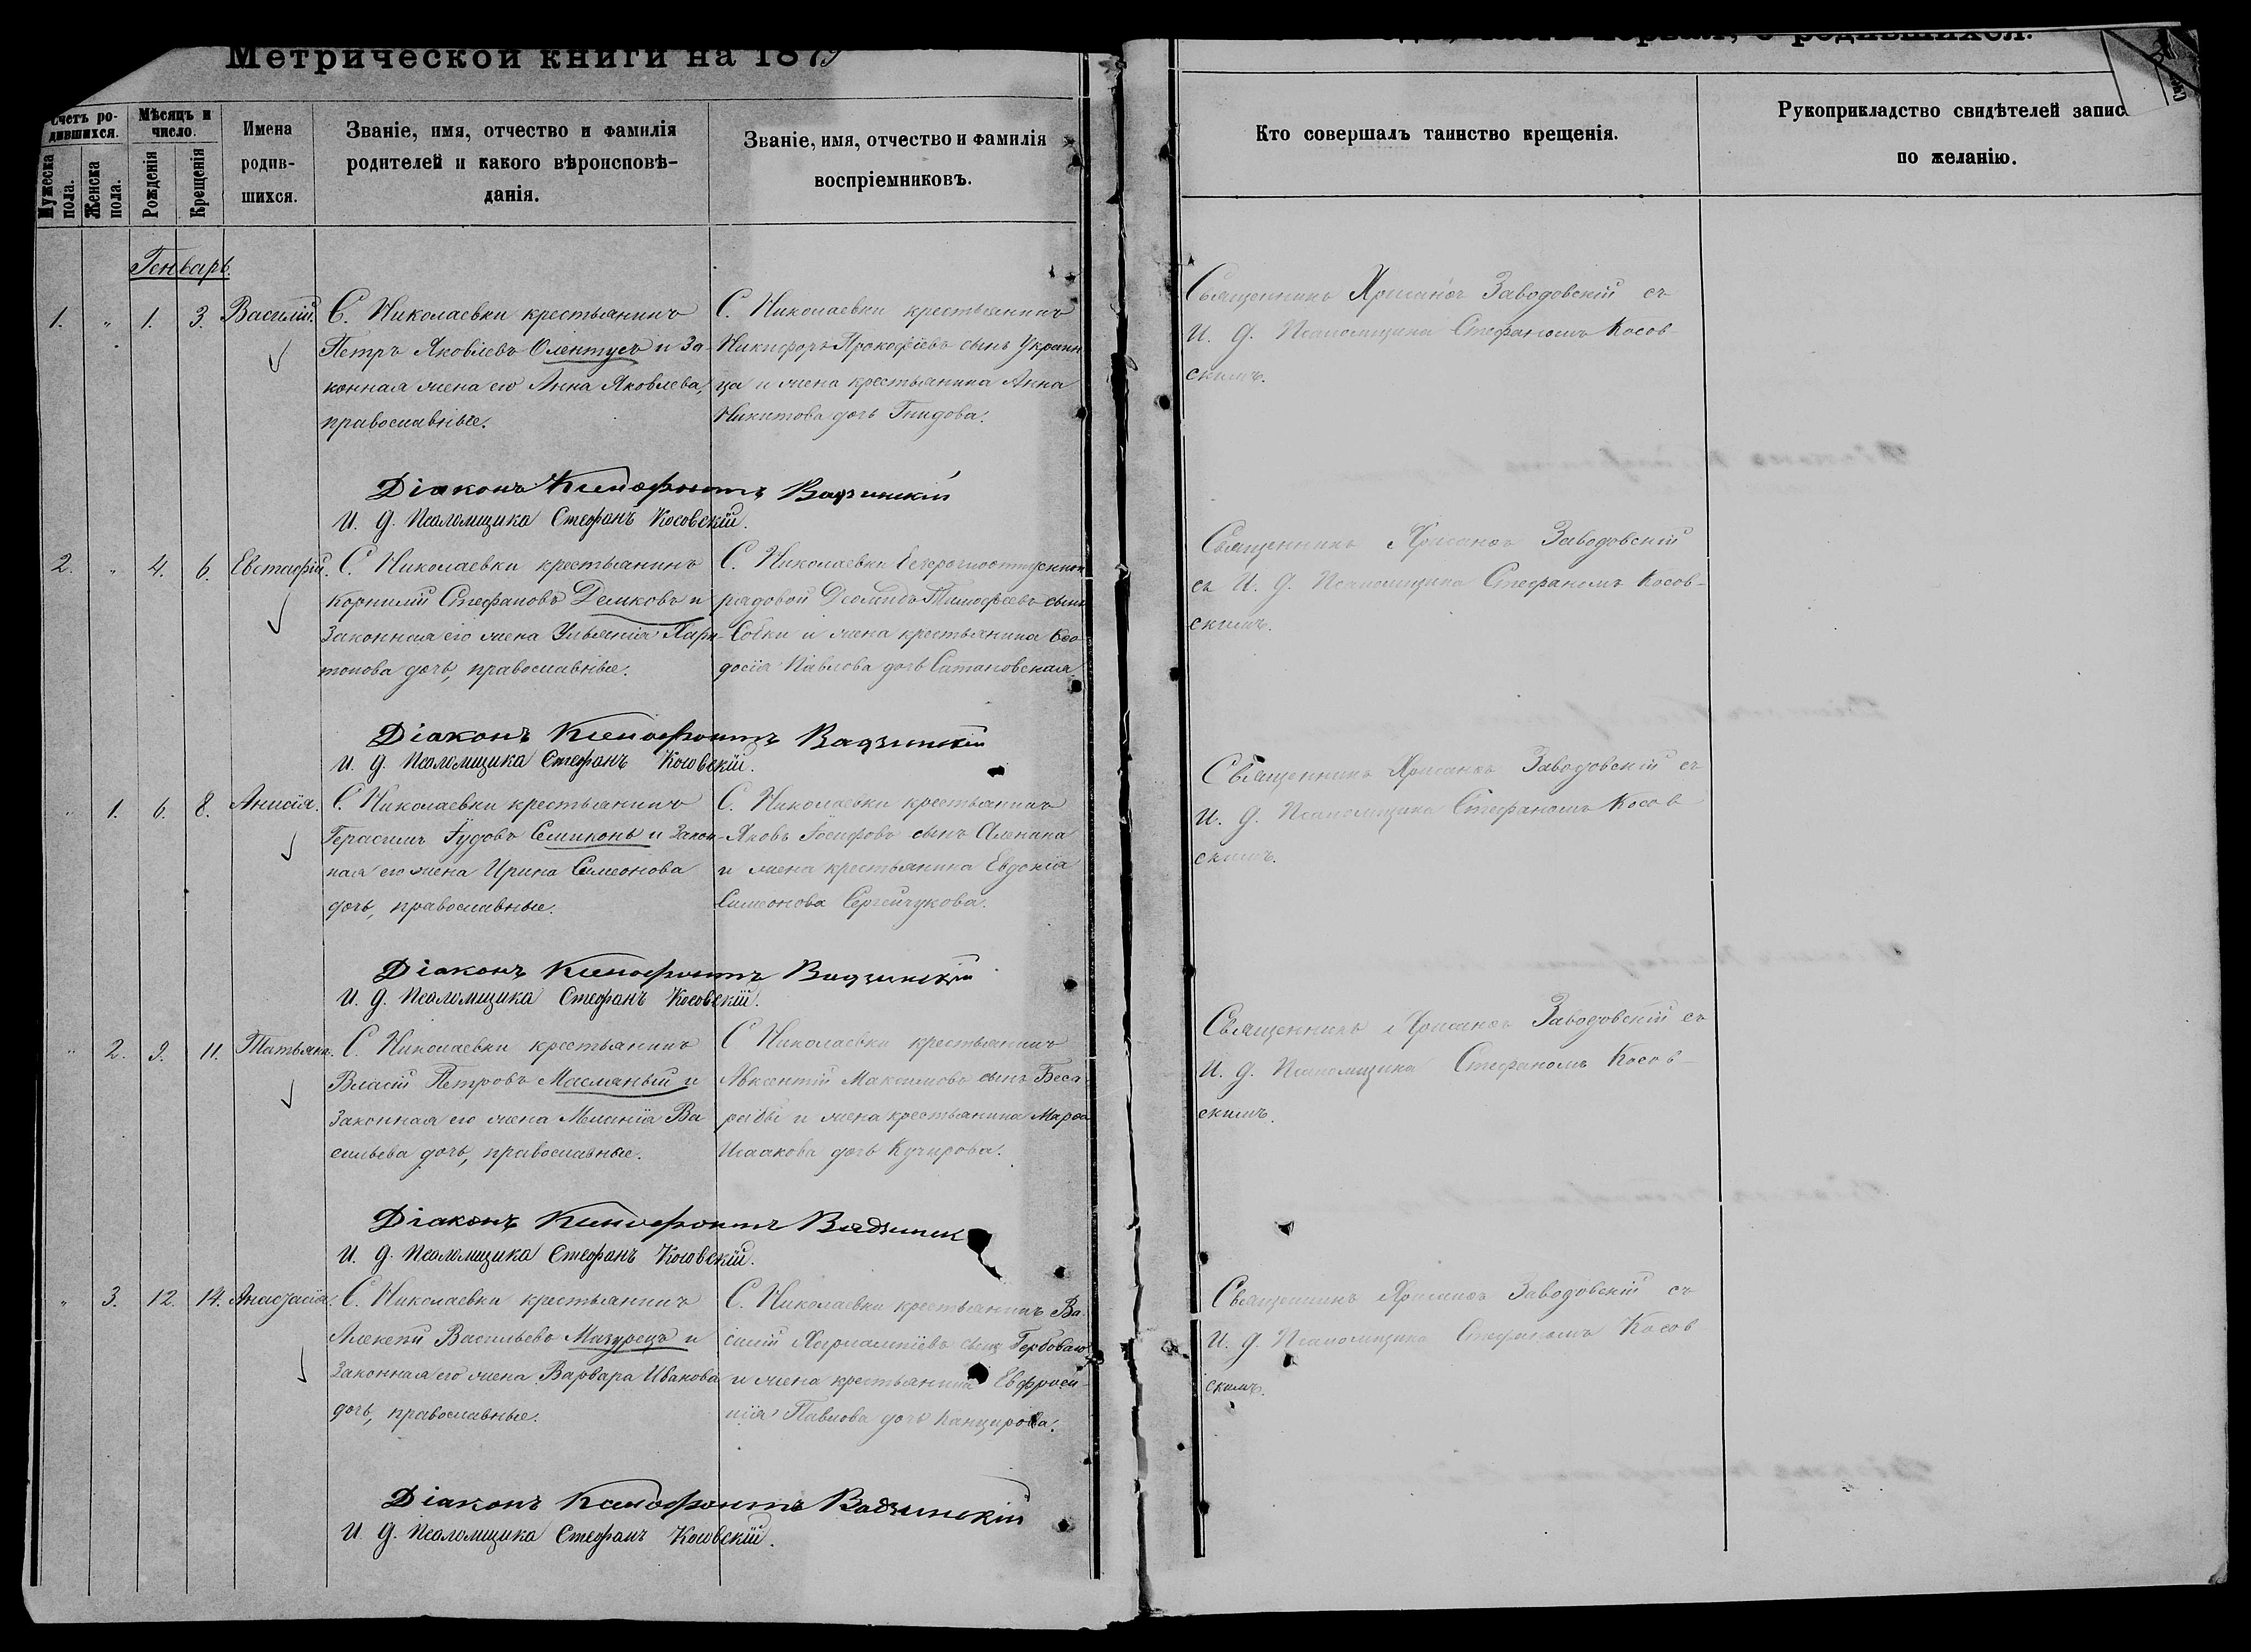 Метрической книги на 1879
Счетъ ро-
дившихся.
Мужеска пола.
Женска пола.
Мѣсяцъ и
число.
Рожденія
Крещенія
Имена
родив-
шихся.
Званіе, имя, отчество и фамилія
родителей и какого вѣроисповѣ-
данія.
Званіе, имя, отчество и фамилія
воспріемниковъ.
Генварь.
1. " 1. 3. Василій.
С. Николаевки крестьянинъ
Петръ Яковлевъ Олентусъ и за-
конная жена его Анна Яковлева,
православные.
С. Николаевки крестьянинъ
Никифоръ Прокофіевъ сынъ Украин
ца и жена крестьянина Анна
Никитова дочь Гнидова.
Діаконъ Ксенофонтъ Вадзинскій
И. д. Псаломщика Стефанъ Косовскій.
2. " 4. 6. Евстафій.
С. Николаевки крестьянинъ
Корнилій Стефановъ Демковъ и
законная его жена Ульянія Хари-
тонова дочь, православные.
С. Николаевки
рядовой Діомидъ Тимофеевъ сынъ
Собки и жена крестьянина Ѳео-
досія Павлова дочь Сатановская.
Діаконъ Ксенофонтъ Вадзинскій
И. д. Псаломщика Стефанъ Косовскій.
" 1. 6. 8. Анисія.
С. Николаевки крестьянинъ
Герасимъ Іудовъ Семиконь и закон-
ная его жена Ирина Симеонова
дочь, православные.
С. Николаевки крестьянинъ
Яковъ Іосифовъ сынъ Аленина
и жена крестьянина Евдокія
Симеонова Сергейчукова.
Діаконъ Ксенофонтъ Вадзинскій
И. д. Псаломщика Стефанъ Косовскій.
" 2. 9. 11. Татьяна.
С. Николаевки крестьянинъ
Власій Петровъ Масляный и
законная его жена Меланія Ва
сильева дочь, православные.
С Николаевки крестьянинъ
Авксентій Максимовъ сынъ Беса
рабы и жена крестьянина Марѳа
Исаакова дочь Кучирова.
Діаконъ Ксенофонтъ Вадзинск
И. д. Псаломщика Стефанъ Косовскій.
" 3. 12. 14. Анастасія.
С. Николаевки крестьянинъ
Алексѣй Васильевъ Мазурецъ и
законная его жена Варвара Иванова
дочь, православные.
С. Николаевки крестьянинъ Ва-
силій Харлампіевъ сынъ
и жена крестьянина Евфроси-
нія Павлова дочь Канцирова.
Діаконъ Ксенофонтъ Вадзинскій
И. д. Псаломщика Стефанъ Косовскій.
первая, о родившихся.
Кто совершалъ таинство крещенія.
Рукоприкладство свидѣтелей запис
по желанію.
Священникъ Хрисанѳъ Заводовскій съ
И. д. Псаломщика Стефаномъ Косов-
скимъ.
Священникъ Хрисанѳъ Заводовскій
съ И. д. Псаломщика Стефаномъ Косов-
скимъ.
Священникъ Хрисанѳъ Заводовскій съ
И. д. Псаломщика Стефаномъ Косов
скимъ.
Священникъ Хрисанѳъ Заводовскій съ
И. д. Псаломщика Стефаномъ Косов-
скимъ.
Священникъ Хрисанѳъ Заводовскій съ
И. д. Псаломщика Стефаномъ Косов
скимъ.